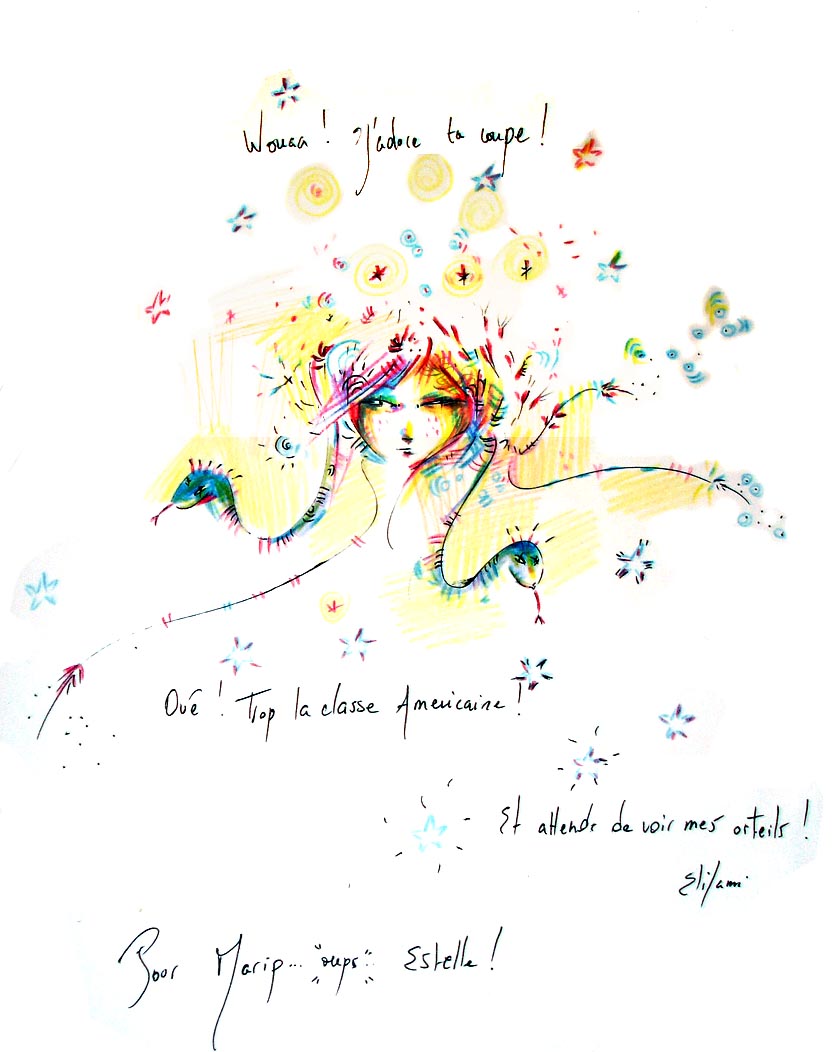 Wouaa ! J'adore ta coupe !
Oué ! Trop la classe Americaine !
Et attends de voir mes orteils !
Poor Marip... "oups" Estelle !